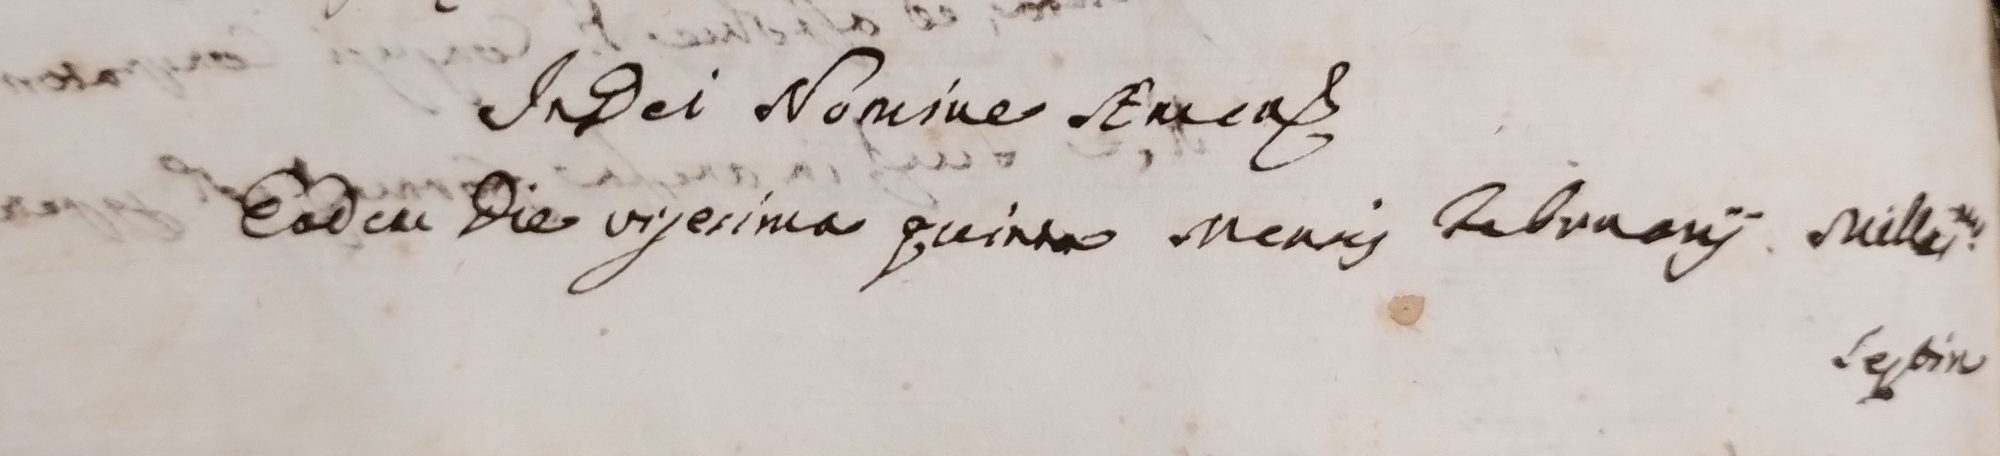 In Dei Nomine Amen
Eadem Die vigesima quinta Mensis Februarij Mill.mo
Septin